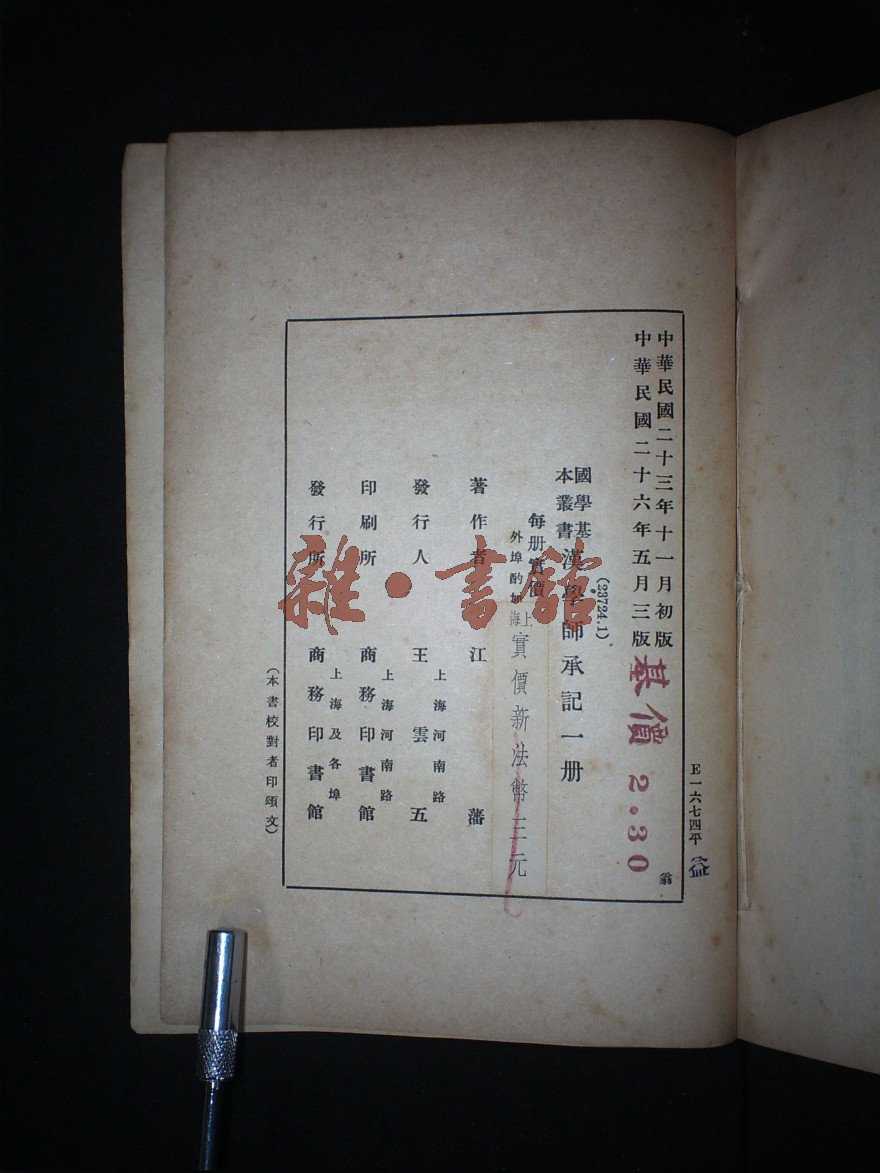 E一六七四平
中華民國二十三年十一月初版
翁
中華民國二十六年五月三版
基價 2.30
(23724.1)
國學基
本叢書
漢學師承記一册
每册實價
外埠酌加
上海
實價新法幣三元
著作者 江藩
發行人 王雲五
上海河南路
印刷所 商務印書館
上海河南路
發行所 商務印書館
上海及各埠
(本書校對者印頌文)
雜·書館